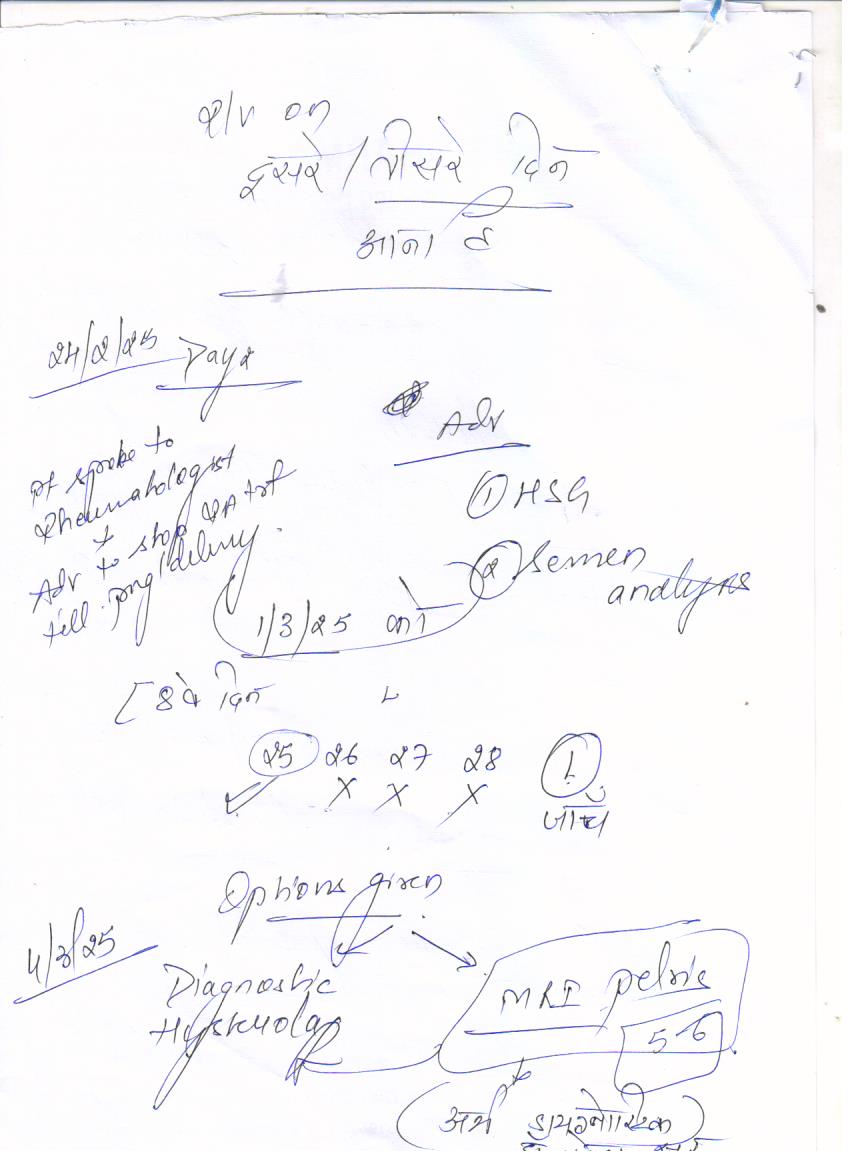 R/v on
दूसरे / तीसरे दिन
आना है
24/2/25 Day 2
Pt spoke to
Rheumatologist
+
Adv to stop RA trt
till preg/delivery.
Adv
① HSG
② Semen
analysis
1/3/25 को
[ 8 वे दिन
25 26 27 28 1
✓ X X X
जाँच
Options given
4/3/25
Diagnostic
MRI pelvis
5-6
अर्थ डायग्नोस्टिक